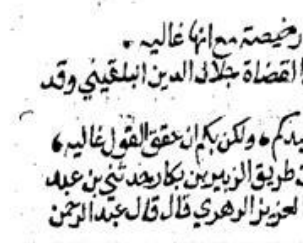 رخيصة مع انها غاليه .
القضاة جلال الدين البلقيني وقد
يدكم ، ولكن بكم ان حقق القول غاليه ،
طريق الزبير بن بكار حدثني بن عبد
لعزيز الزهري قال قال عبد الرحمن